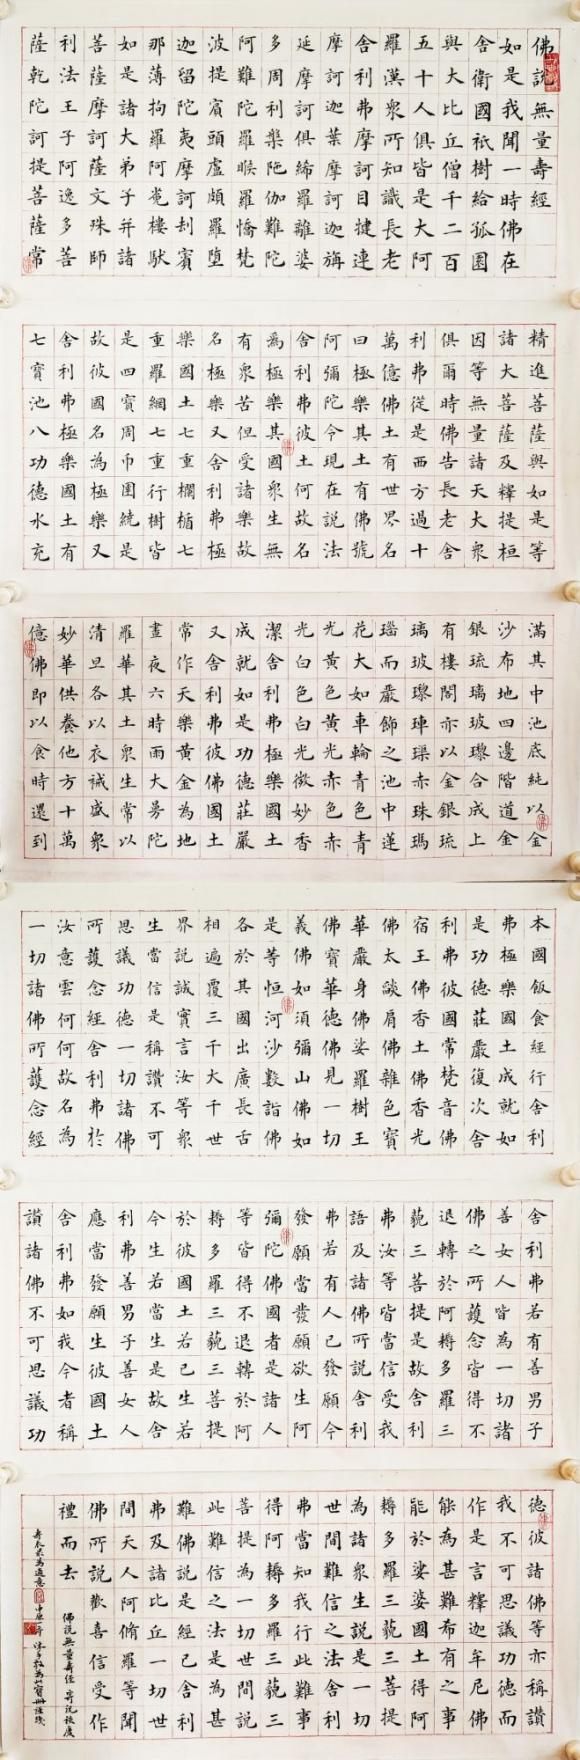 佛說無量壽經
如是我聞一時佛在
舍衛國祇樹給孤園
與大比丘僧千二百
五十人俱皆是大阿
羅漢衆所知識長老
舍利弗摩訶目揵連
摩訶迦葉摩訶迦旃
延摩訶俱絺羅離婆
多周利槃陁伽難陀
阿難陀羅睺羅憍梵
波提賓頭盧頗羅墮
迦留陀夷摩訶劫賓
那薄拘羅阿㝹樓馱
如是諸大弟子并諸
菩薩摩訶薩文殊師
利法王子阿逸多菩
薩乾陀訶提菩薩常
精進菩薩與如是等
諸大菩薩及釋提桓
因等無量諸天大衆
俱爾時佛告長老舍
利弗從是西方過十
萬億佛土有世界名
曰極樂其土有佛號
阿彌陀今現在說法
舍利弗彼土何故名
為極樂其國衆生無
有衆苦但受諸樂故
名極樂又舍利弗極
樂國土七重欄楯七
重羅網七重行樹皆
是四寶周帀圍繞是
故彼國名為極樂又
舍利弗極樂國土有
七寶池八功德水充
滿其中池底純以金
沙布地四邊階道金
銀琉璃玻瓈合成上
有樓閣亦以金銀琉
璃玻瓈硨磲赤珠瑪
瑙而嚴飾之池中蓮
花大如車輪青色青
光黃色黃光赤色赤
光白色白光微妙香
潔舍利弗極樂國土
成就如是功德莊嚴
又舍利弗彼佛國土
常作天樂黃金為地
晝夜六時雨大曼陀
羅華其土衆生常以
清旦各以衣祴盛衆
妙華供養他方十萬
億佛即以食時還到
本國飯食經行舍利
弗極樂國土成就如
是功德莊嚴復次舍
利弗彼國常梵音佛
宿王佛香土佛香光
佛大燄肩佛雜色寶
華嚴身佛娑羅樹王
佛寶華德佛見一切
義佛如須彌山佛如
是等恒河沙數諸佛
各於其國出廣長舌
相遍覆三千大千世
界說誠實言汝等衆
生當信是稱讚不可
思議功德一切諸佛
所護念經舍利弗於
汝意雲何何故名為
一切諸佛所護念經
舍利弗若有善男子
善女人皆為一切諸
佛之所護念皆得不
退轉於阿耨多羅三
藐三菩提是故舍利
弗汝等皆當信受我
語及諸佛所說舍利
弗若有人已發願今
發願當發願欲生阿
彌陀佛國者是諸人
等皆得不退轉於阿
耨多羅三藐三菩提
於彼國土若已生若
今生若當生是故舍
利弗善男子善女人
應當發願生彼國土
舍利弗如我今者稱
讚諸佛不可思議功
德彼諸佛等亦稱讚
我不可思議功德而
作是言釋迦牟尼佛
能為甚難希有之事
能於娑婆國土得阿
耨多羅三藐三菩提
為諸衆生說是一切
世間難信之法舍利
弗當知我行此難事
得阿耨多羅三藐三
菩提為一切世間說
此難信之法是為甚
難佛說是經已舍利
弗及諸比丘一切世
間天人阿脩羅等聞
佛所說歡喜信受作
禮而去
佛說無量壽經